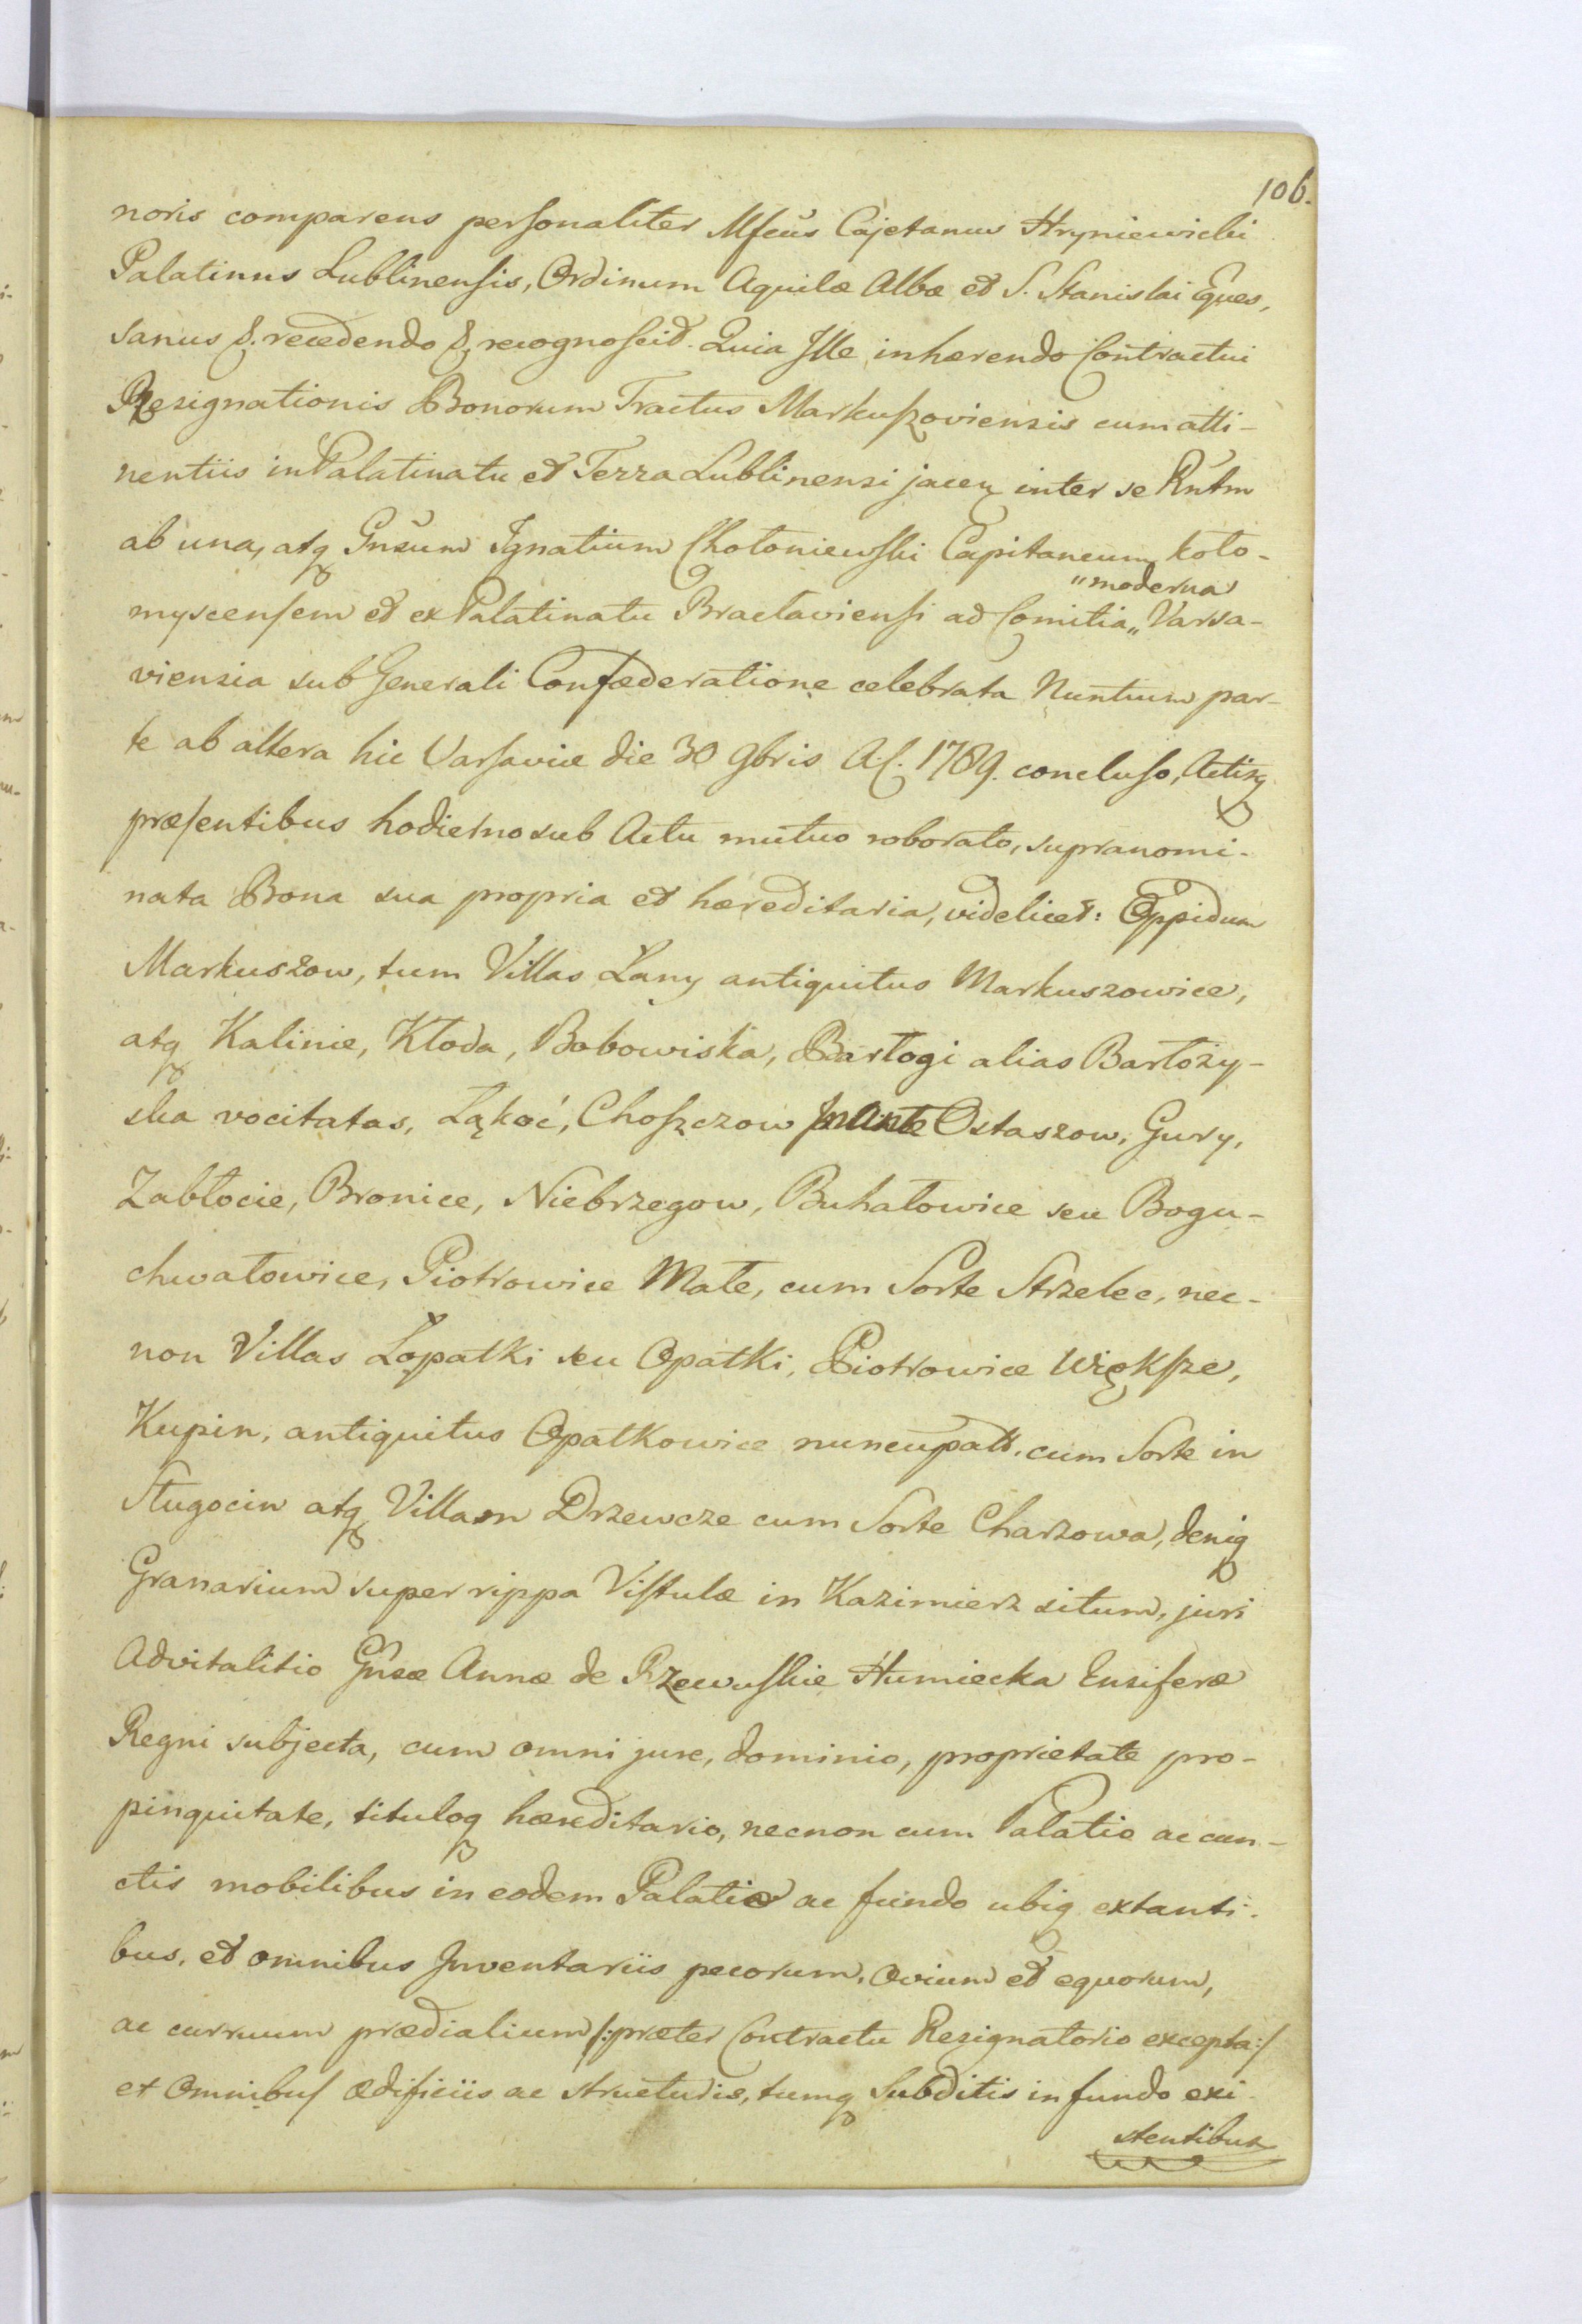 106.
noris comparens personaliter Mfcus Cajetanus Hryniewicki
Palatinus Lublinensis, Ordinum Aquilæ Albæ et S. Stanislai Eques,
sanus &. recedendo &. recognoscit. Quia Ille inhærendo Contractui
Resignationis Bonorum Tractus Markuszoviensis cum atti-
nentiis in Palatinatu et Terra Lublinensi jacen inter se Rntm
ab una, atq Gnsum Ignatium Chołoniewski Capitaneum koło-
"moderna
myscensem et ex Palatinatu Braclaviensi ad Comitia„ Varsa-
viensia sub Generali Confæderatione celebrata Nuntium par-
te ab altera hic Varsaviæ die 30 9bris A. 1789. concluso, Actisq
præsentibus hodierno sub Actu mutuo roborato, supranomi-
nata Bona sua propria et hæreditaria, videlicet: Oppidum
Markuszow, tum Villas Łany antiquitus Markuszowice,
atq Kalinie, Kłoda, Bobowiska, Barłogi alias Barłoży-
ska vocitatas, Łąkoć, Choszczow Ostaszow, Gury,
Zabłocie, Bronice, Niebrzegow, Buhałowice seu Bogu-
chwałowice, Piotrowice Małe, cum Sorte Strzelec, nec-
non Villas Łopatki seu Opatki, Piotrowice Większe,
Kupin, antiquitus Opatkowice nuncupatt. cum Sorte in
Sługocin atq Villam Drzewcze cum Sorte Charzowa, deniq
Granarium super rippa Vistulæ in Kazimierz situm, juri
Advitalitio Gnsæ Annæ de Rzewuskie Humiecka Ensiferæ
Regni subjecta, cum omni jure, dominio, proprietate pro-
pinquitate, tituloq hæreditario, necnon cum Palatio ac cun-
ctis mobilibus in eodem Palatio ac fundo ubiq extanti-
bus, et omnibus Inventariis pecorum, ovium et equorum,
ac curruum prædialium /:præter Contractu Resignatorio excepta:/
et Omnibus ædificiis ac structuris, tumq Subditis in fundo exi-
stentibus